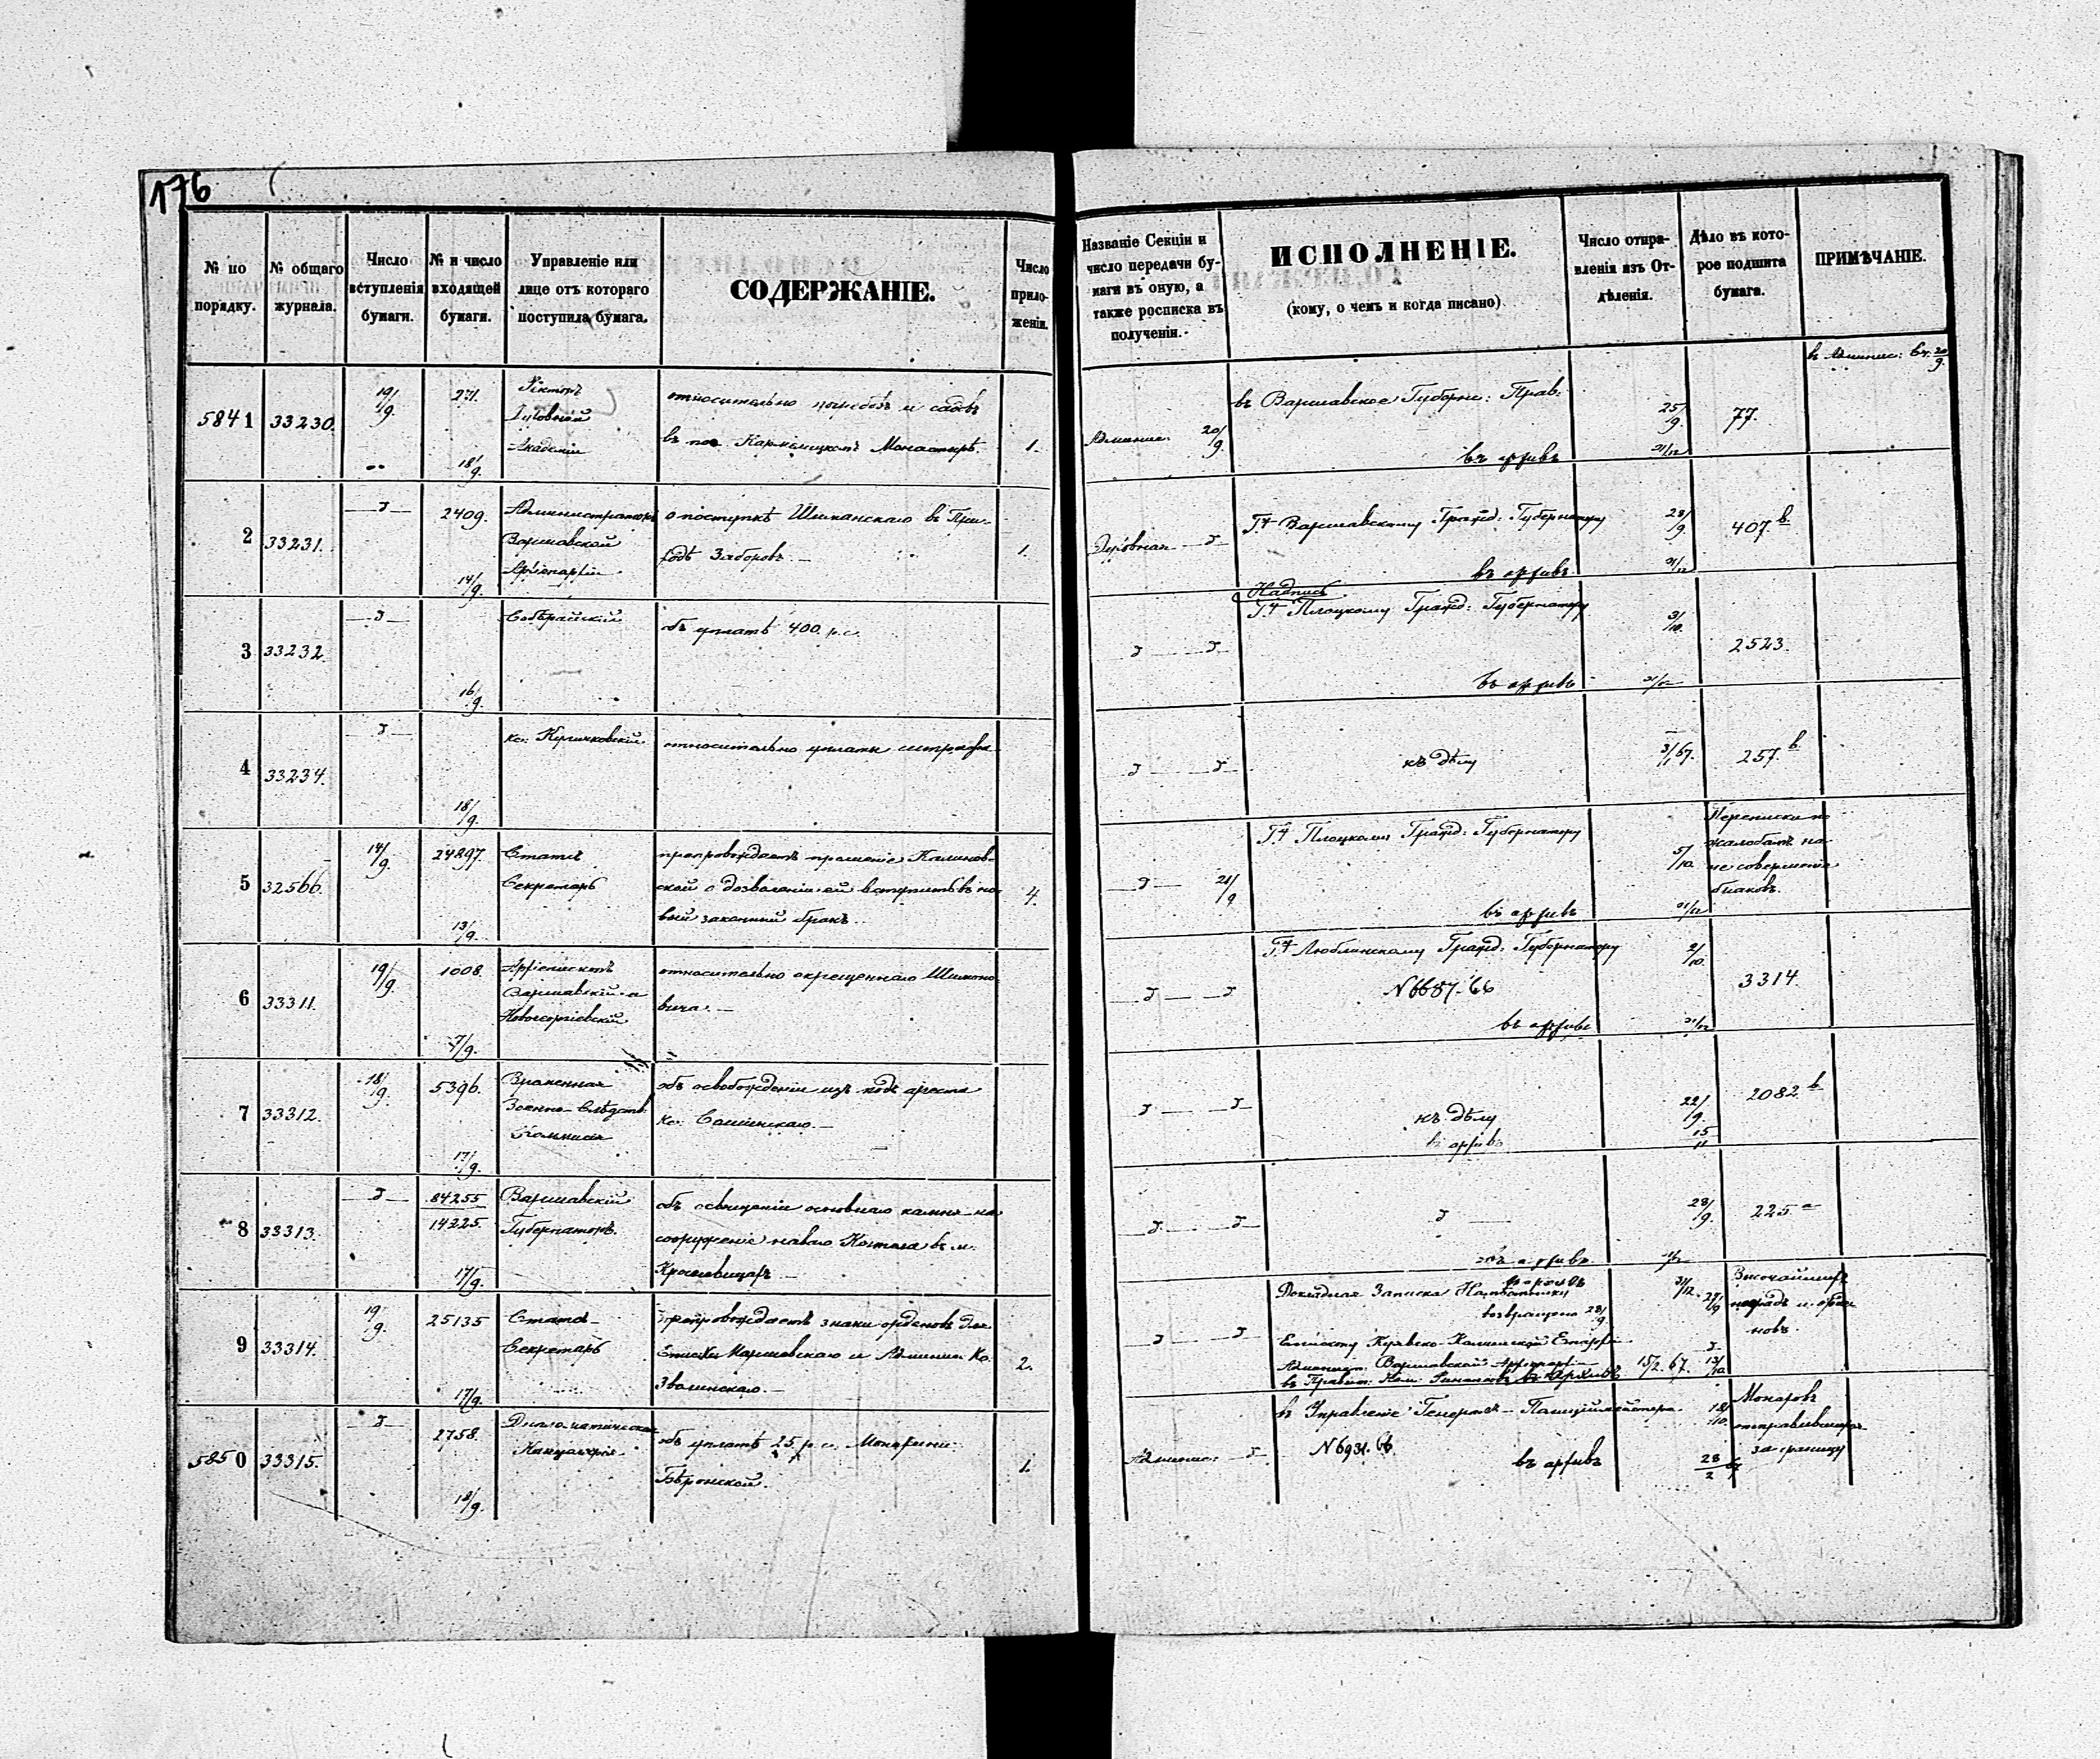 176
№ по порядку.
№ общаго журнала.
Число вступленія бумаги.
№ и число входящей бумаги.
Управленіе или лице отъ котораго поступила бумага.
СОДЕРЖАНІЕ.
Число приложеній.
Названіе Секціи и число передачи бумаги въ оную, а также росписка въ полученіи.
ИСПОЛНЕНІЕ.
(кому, о чемъ и когда писано)
Число отправленія изъ Отдѣленія.
Дѣло въ которое подшита бумага.
ПРИМѢЧАНІЕ.
5841 33230. 19/9. 271. 18/9.
Ректоръ
Духовной
Академіи
относительно погребовъ и садовъ
въ пос. Кармелицкомъ Монастырѣ. 1.
Админис. 20/9.
въ Варшавское Губерн: Прав:
25/9. 77.
въ архивъ 31/12
въ Админис: 20/9
2 33231. 2409. 14/9.
Администраторъ
Варшавской
Архіепархіи
о поступкѣ Шиманскаго въ При-
ходѣ Заборовъ. 1.
Духовная
Гну Варшавскому Гражд. Губернатору
28/9. 407.в
въ архивъ 31/12
3 33232. 16/9.
объ уплатѣ 400. р.с.
Надпись
Гну Плоцкому Гражд: Губернатору
3/10. 2523.
въ архивъ 31/12
4 33234. 18/9.
относительно уплаты штрафа
къ дѣлу
3/1 67. 257.в
5 32566. 14/9. 24897. 13/9.
Статсъ
Секретарь
препровождаетъ прошеніе Калинов-
ской о дозволеніи ей вступить въ но-
вый законный бракъ. 4.
21/9
Гну Плоцкому Гражд: Губернатору
5/10.
въ архивъ 31/12
Переписка по
жалобамъ на
не совершеніе
браковъ.
6 33311. 19/9. 1008. 7/9.
Архіепископъ
Варшавскій и
Новогеоргіевскій
относительно окрещеннаго Шимоно-
вича.
Гну Люблинскому Гражд: Губернатору
N 6687.66
2/10. 3314.
въ архивъ 31/12
7 33312. 18/9. 5396. 17/9.
Временная
Военно-Слѣдств.
Коммисія
объ освобожденіи изъ подъ ареста
къ дѣлу
въ архивъ
22/9. 15/11 2082.в
8 33313. 84255 14225. 17/9.
Варшавскій
Губернаторъ.
объ освященіи основнаго камня на
сооруженіе новаго Костела въ м.
28/9. 225 а
въ архивъ
9 33314. 19/9. 25135 17/9.
Статсъ-
Секретарь
препровождаетъ знаки орденовъ для
Епископа Маршевскаго и Админис. Кс.
Зволинскаго. 2.
Докладная Записка Намѣстнику
возвращена 28/9
Епископу Куявско-Калишской Епархіи
Админист. Варшавской Архіепархіи
въ Правит. Ком. Финансовъ въ Архивъ 15/2. 67.
31/12. 27/9
13/10.
Высочайшихъ
наградъ и орде-
новъ.
5850 33315. 2758. 18/9.
Дипломатическая
Канцелярія
объ уплатѣ 25 р.с. Монахини
1.
Админис:
въ Управленіе Генералъ-Полицiймейстера
N 6931.66.
18/10.
въ архивъ 28/2 67
Монаховъ
отправившихся
за границу